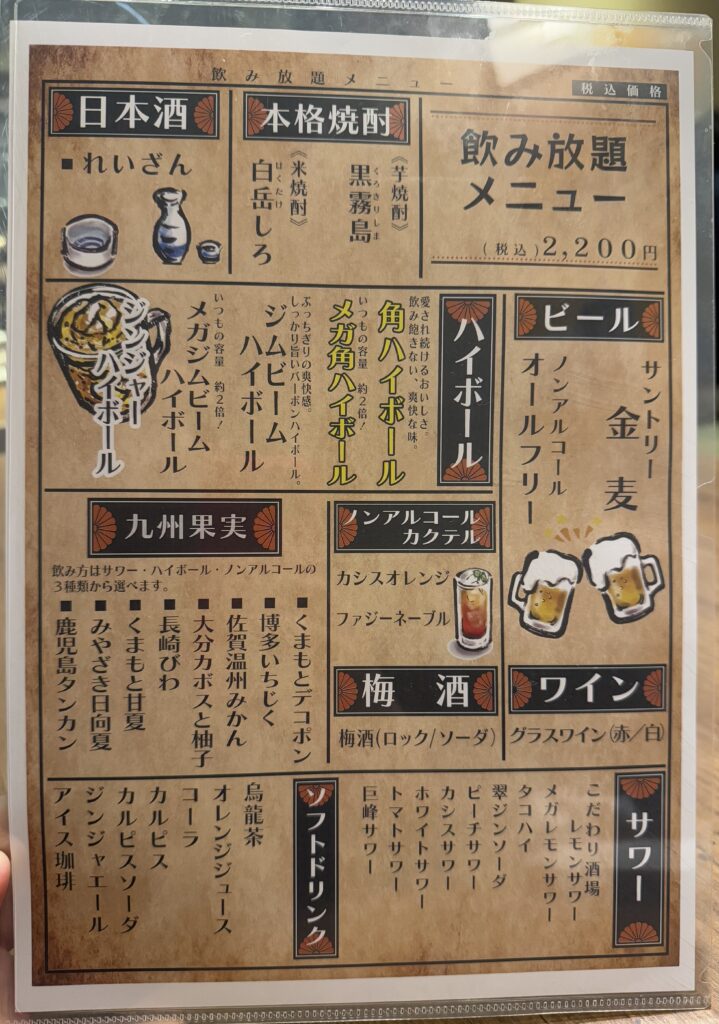 飲み放題メニュー
税込価格
飲み放題
メニュー
(税込)2,200円
本格焼酎
《芋焼酎》
黒霧島
くろきりしま
《米焼酎》
白岳しろ
はくたけ
日本酒
■れいざん
ビール
サントリー
金麦
ノンアルコール
オールフリー
ハイボール
愛され続けるおいしさ。
飲み飽きない、爽快な味。
角ハイボール
いつもの容量 約2倍!
メガ角ハイボール
ぶっちぎりの爽快感。
しっかり旨いバーボンハイボール。
ジムビーム
ハイボール
いつもの容量 約2倍!
メガジムビーム
ハイボール
ジンジャー
ハイボール
ノンアルコール
カクテル
カシスオレンジ
ファジーネーブル
九州果実
飲み方はサワー・ハイボール・ノンアルコールの
3種類から選べます。
■くまもとデコポン
■博多いちじく
■佐賀温州みかん
■大分カボスと柚子
■長崎びわ
■くまもと甘夏
■みやざき日向夏
■鹿児島タンカン
ワイン
グラスワイン(赤/白)
梅酒
梅酒(ロック/ソーダ)
サワー
こだわり酒場
レモンサワー
メガレモンサワー
タコハイ
翠ジンソーダ
ピーチサワー
カシスサワー
ホワイトサワー
トマトサワー
巨峰サワー
ソフトドリンク
烏龍茶
オレンジジュース
コーラ
カルピス
カルピスソーダ
ジンジャエール
アイス珈琲